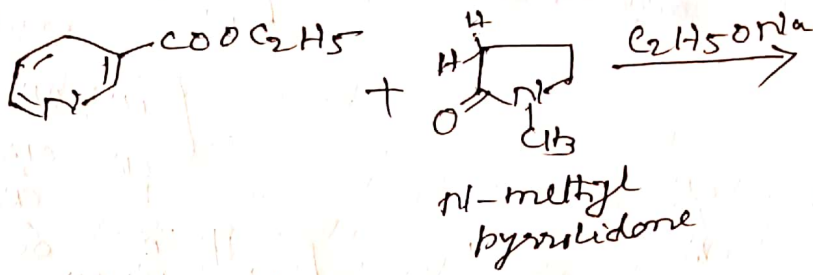 COOC2H5
N
+
H
H
O
N
CH3
C2H5ONa
N-methyl
pyrrilidone